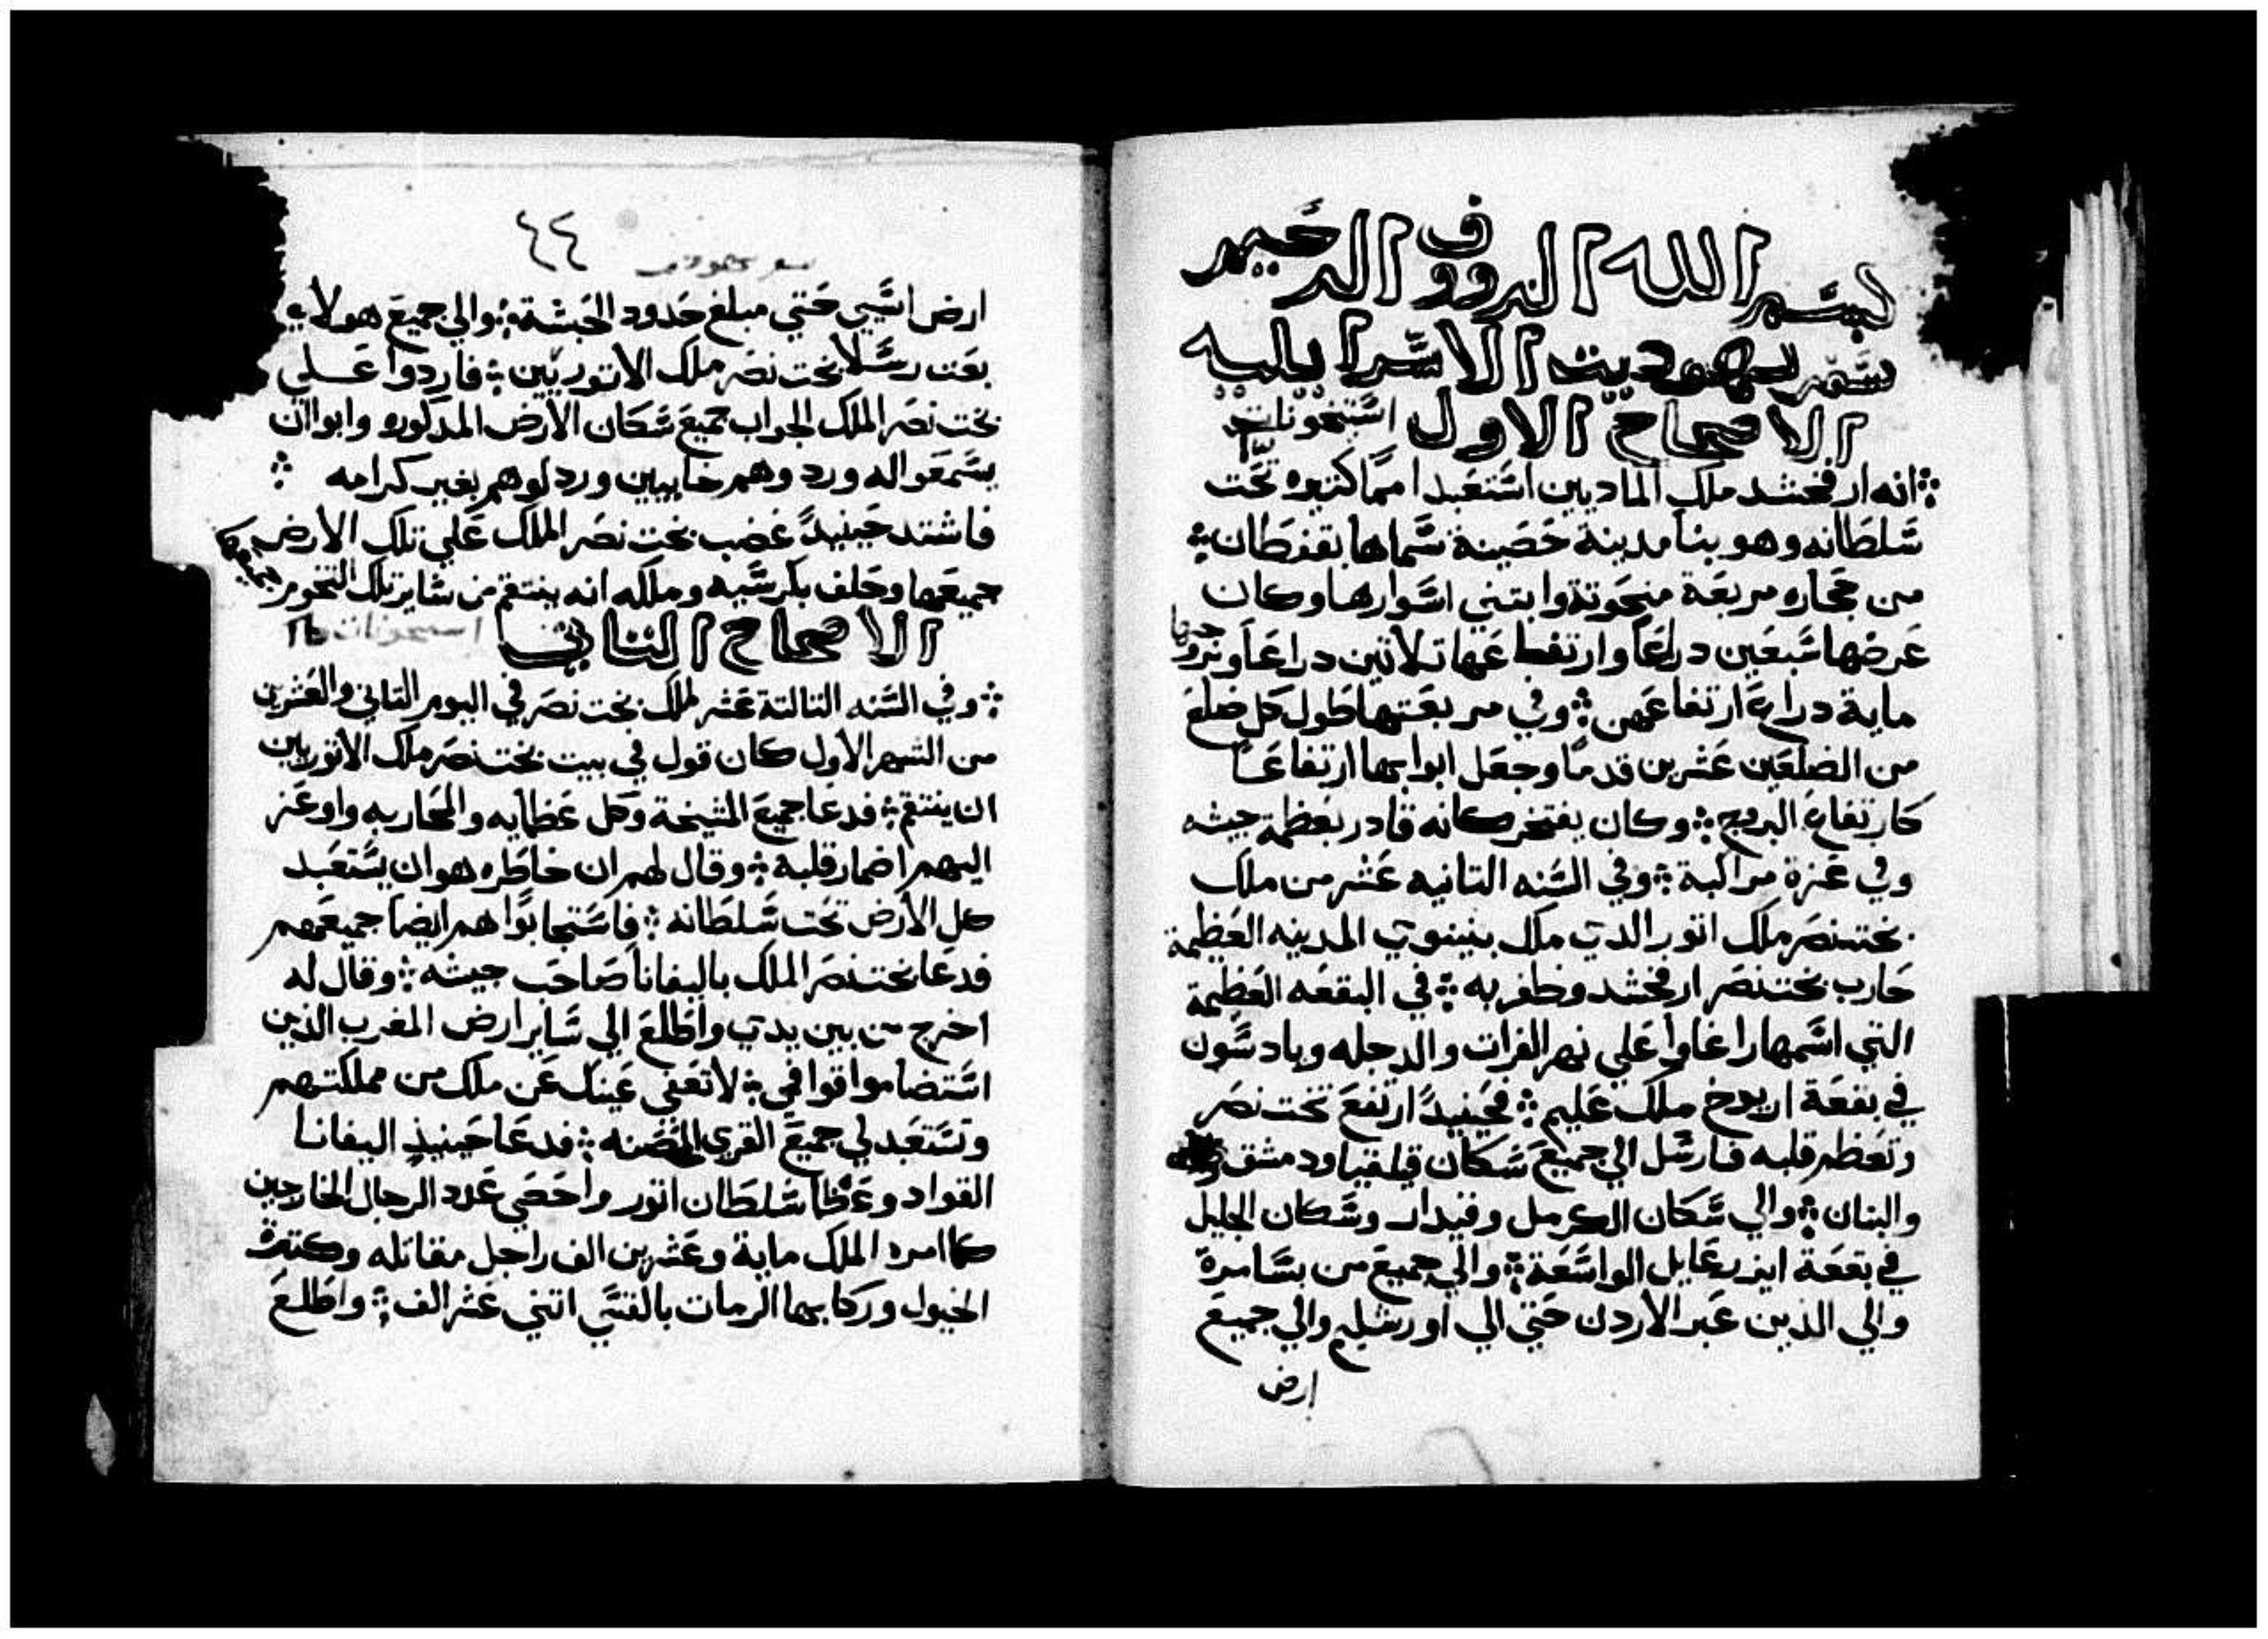 بسم الله الرووف الرحيم
سفر يهوديت الاسراييليه
الاصحاح الاول استيخونات
انه ارفخشد ملك الماديين استعبد امما كتيره تحت
سلطانه وهو بنا مدينة حصينة سماها بقفطان
من حجاره مربعة منحوتة وابتني اسوارها وكان
عرضها سبعين دراعا وارتفاعها تلاتين دراعا وبروجها
ماية دراع ارتفاعهن وفي مربعتها طول كل ضلع
من الضلعين عشرين قدما وجعل ابوابها ارتفاعا
كارتفاع البروج وكان يفتخر كانه قادر بعظمة جيشه
وفي عزة مراكبة وفي السنه التانيه عشر من ملك
بختنصر ملك اتور الدي ملك بنينوي المدينه العظيمة
حارب بختنصر ارفخشد وظفر به في البقعه العظيمة
التي اسمها راغاوا علي نهر الفرات والدجله وبادسون
في بقعة اريوخ ملك عليم فحينيدا ارتفع بخت نصر
وتعظم قلبه فارسل الي جميع سكان قيلقيا ودمشق
والبنان والي سكان الكرمل وقيدار وسكان الجليل
في بقعة ايزرعايل الواسعة والي جميع من بسامرة
والي الذين عبر الأردن حتي الي اورشليم والي جميع
ارض
٤٤
سفر يهوديت
ارض اسيي حتي مبلغ حدود الحبشة والي جميع هولاء
بعت رسلا بخت نصر ملك الاتوريين فاردوا علي
بخت نصر الملك الجواب جميع سكان الأرض المدكوره وابوا ان
يسمعوا له ورد وهم خايبين وردلوهم بغير كرامه
فاشتد حينيدا غضب بخت نصر الملك علي تلك الأرض
جميعها وحلف بكرسيه وملكه انه ينتقم من ساير تلك التخوم جميعها
الاصحاح التاني استيخونات
وفي السنه التالتة عشر لملك بخت نصر في اليوم التاني والعشرين
من الشهر الأول كان قول في بيت بختنصر ملك الأتوريين
ان ينتقم فدعا جميع المشيخة وكل عظمايه والمحاربه واوعز
اليهم اضمار قلبة وقال لهم ان خاطره هو ان يستعبد
كل الأرض تحت سلطانه فاستجابوا هم ايضا جميعهم
فدعا بختنصر الملك باليفانا صاحب جيشه وقال له
اخرج من بين يدي واطلع الي ساير ارض المغرب الذين
استضاموا قوافي لا تعفي عينك عن ملك من مملكتهم
وتستعبد لي جميع القري المحصنه فدعا حينيذ اليفانا
القواد وعظما سلطان اتور واحصي عدد الرجال الخارجين
كما امره الملك ماية وعشرين الف راجل مقاتله وكترة
الخيول وركابها الرمات بالقسي اتني عشر الف واطلع